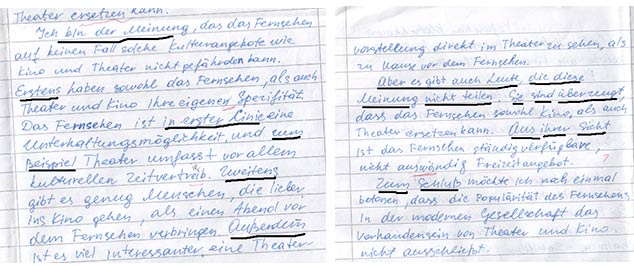 Theater ersetzen kann.
Ich bin der Meinung, das das Fernsehen
auf keinen Fall solche Kulterangebote wie
Kino und Theater nicht gefährden kann.
Erstens haben sowohl das Fernsehen, als auch
Theater und Kino ihre eigenen Spezifität
Das Fernsehen ist in erster Linie eine
Unterhaltungsmöglichkeit, und zum
Beispiel Theater umfasst vor allem
kulturellen Zeitvertreib. Zweitens
gibt es genug Menschen, die lieber
ins Kino gehen, als einen Abend vor
dem Fernsehen verbringen. Außerdem
ist es viel interessanter, eine Theater-
vorstellung direkt im Theater zu sehen, als
zu Hause vor dem Fernsehen.
Aber es gibt auch Leute, die diese
Meinung nicht teilen. Sie sind überzeugt,
dass das Fernsehen sowohl Kino, als auch
Theater ersetzen kann. Aus ihrer Sicht
ist das Fernsehen ständig verfügbare,
nicht auswändig Freizeitangebot. ?
Zum Schluß möchte ich noch einmal
betonen, dass die Popularität des Fernsehens
in der modernen Gesellschaft das
vorhandensein von Theater und Kino
nicht ausschließt.